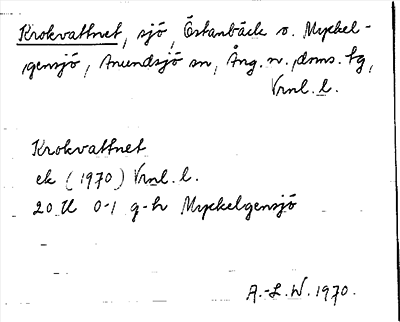 Krokvattnet, sjö, Östanbäck o. Myckel-
gensjö, Anundsjö sn, Ång. n. doms. tg,
Vrnl. l.
Krokvattnet
ek (1970) Vrnl. l.
20 H 0-1 g-h Myckelgensjö
A.-L. W. 1970.